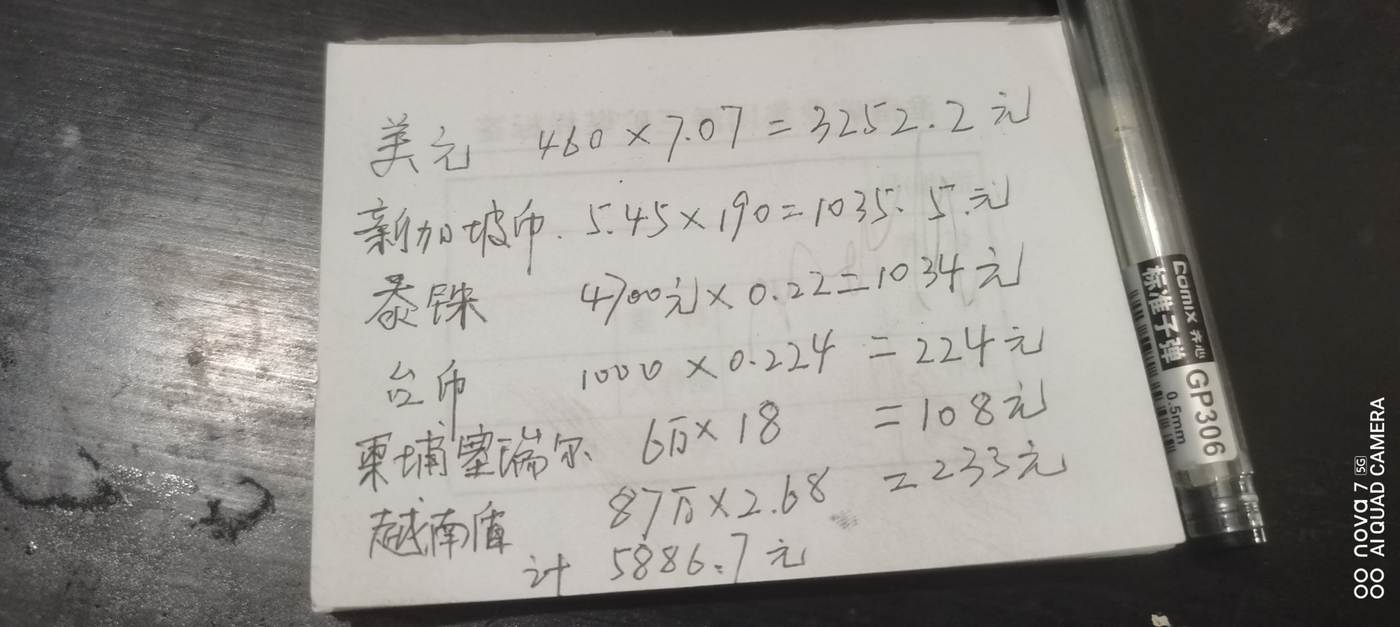 美元 460×7.07=3252.2元
新加坡币. 5.45×190=1035.5元
泰铢 4700元×0.22=1034元
台币 1000×0.224=224元
柬埔寨瑞尔 6万×18=108元
越南盾 87万×2.68=233元
计 5886.7元
Comix 齐心 GP306
标准子弹 0.5mm
nova 7 5G
AI QUAD CAMERA